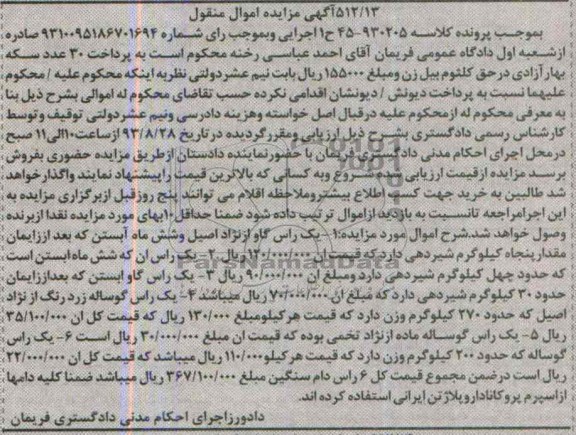 ۵۱۲/۱۳آگهی مزایده اموال منقول
بموجب پرونده کلاسه ۹۳۰۲۰۵-۴۵ ح۱اجرایی وبموجب رای شماره ۹۳۱۰۰۹۵۱۸۶۷۰۱۶۹۴ صادره
ازشعبه اول دادگاه عمومی فریمان آقای احمد عباسی رخنه محکوم است به پرداخت ۳۰ عدد سکه
بهارآزادی درحق کلثوم بیل زن ومبلغ ۱۵۵۰۰۰ ریال بابت نیم عشردولتی نظربه اینکه محکوم علیه /محکوم
علیهما نسبت به پرداخت دیونش / دیونشان اقدامی نکرده حسب تقاضای محکوم له اموالی بشرح ذیل بنا
به معرفی محکوم له ازمحکوم علیه درقبال اصل خواسته وهزینه دادرسی ونیم عشردولتی توقیف وتوسط
کارشناس رسمی دادگستری بشرح ذیل ارزیابی ومقررگردیده درتاریخ ۹۳/۸/۲۸ ازساعت۱۰الی۱۱ صبح
درمحل اجرای احکام مدنی دادگستری فریمان با حضورنماینده دادستان ازطریق مزایده حضوری بفروش
برسد مزایده ازقیمت ارزیابی شده شروع وبه کسانی که بالاترین قیمت را پیشنهاد نمایند واگذارخواهد
شد طالبین به خرید جهت کسب اطلاع بیشتروملاحظه اقلام می توانند پنج روزقبل ازبرگزاری مزایده به
این اجرامراجعه تانسبت به بازدید ازاموال ترتیب داده شود ضمنا حداقل ۱۰بهای مورد مزایده نقدا ازبرنده
وصول خواهد شد.شرح اموال مورد مزایده:۱-یک راس گاو ازنژاد اصیل وشش ماه آبستن که بعد اززایمان
مقدارپنجاه کیلوگرم شیردهی دارد که قیمت ان ۱۲۰/۰۰۰/۰۰۰ ریال ۲- یک راس ان که شش ماه ابستن است
که حدود چهل کیلوگرم شیردهی دارد ومبلغ ان ۹۰/۰۰۰/۰۰۰ ریال ۳- یک راس گاو ابستن که بعداززایمان
حدود ۳۰ کیلوگرم شیردهی دارد که مبلغ ان ۷۰/۰۰۰/۰۰۰ ریال میباشد ۴- یک راس گوساله زرد رنگ از نژاد
اصیل که حدود ۲۷۰ کیلوگرم وزن دارد که قیمت هرکیلومبلغ ۱۳۰/۰۰۰ ریال که قیمت کل ان ۳۵/۱۰۰/۰۰۰
ریال ۵- یک راس گوساله ماده ازنژاد تخمی بوده که قیمت ان مبلغ ۳۰/۰۰۰/۰۰۰ ریال است ۶- یک راس
گوساله که حدود ۲۰۰ کیلوگرم وزن دارد که قیمت هرکیلو۱۱۰/۰۰۰ ریال میباشد که قیمت کل ان ۲۲/۰۰۰/۰۰۰
ریال است درضمن مجموع قیمت کل ۶ راس دام سنگین مبلغ ۳۶۷/۱۰۰/۰۰۰ ریال میباشد ضمنا کلیه دامها
ازاسپرم پروکاناداروپلاژتن ایرانی استفاده کرده اند.
دادورزاجرای احکام مدنی دادگستری فریمان
ParsNamadData